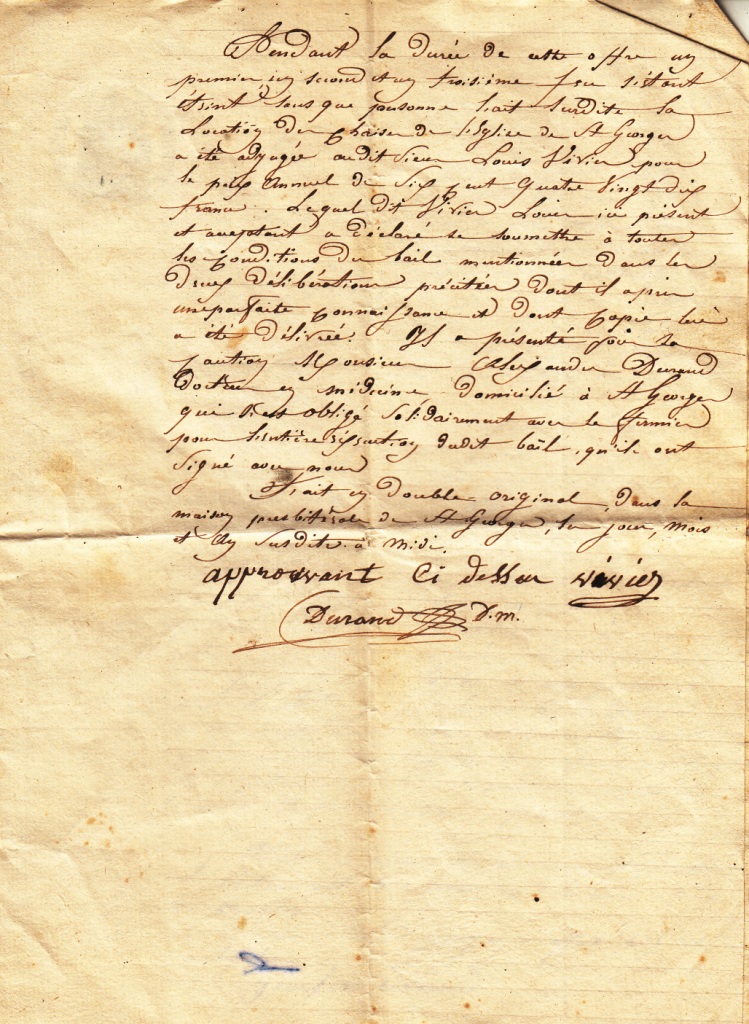 Pendant la durée de cette offre un
premier un second et un troisième feu s'étant
éteint sans que personne l'ait surdite la
Location des chaises de l'Eglise de St Georges
a été adjugée audit sieur Louis Vivier pour
le prix annuel de six cent quatre vingt dix
francs. Lequel dit Vivier Louis ici présent
et acceptant a déclaré se soumettre à toutes
les conditions du bail mentionnées dans les
deux délibérations précitées dont il a pris
une parfaite connaissance et dont copie lui
a été délivrée. Il a présenté pour sa
caution Monsieur Alexandre Durand
Docteur en médecine, domicilié à St Georges
qui s'est obligé solidairement avec le fermier
pour l'entière exécution dudit bail, qu'ils ont
signé avec nous
Fait en double original, dans la
maison presbitérale de St Georges, les jour, mois
et an susdits à midi.
approuvant Ci dessu vivier
Durand D.m.